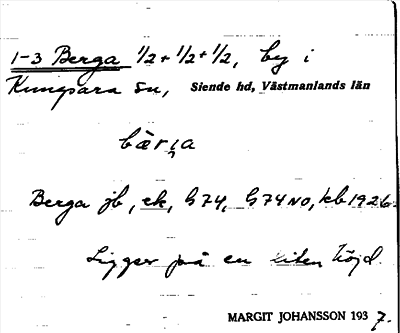 1-3 Berga 1/2 + 1/2 + 1/2, by i
Kungsara sn, Siende hd, Västmanlands län
bæri̯a
Berga jb, ek, G 74, G 74 NO, kb 1926
Ligger på en liten höjd.
MARGIT JOHANSSON 1937.